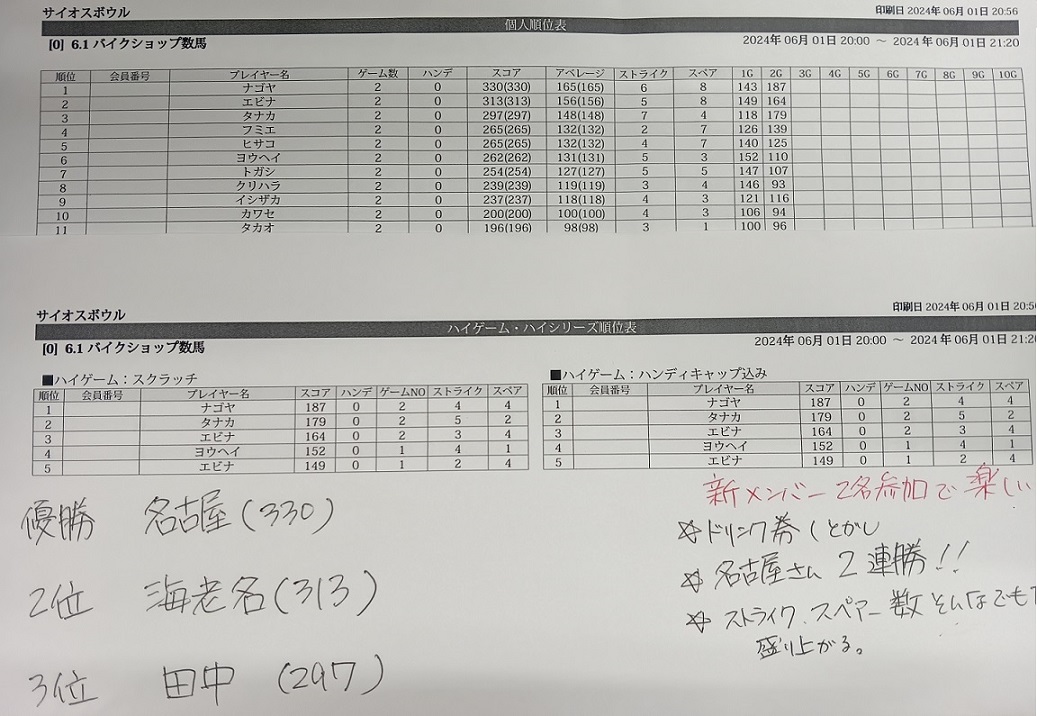 サイオスボウル
印刷日 2024年 06月 01日 20:56
個人順位表
[0] 6.1 バイクショップ数馬
2024年 06月 01日 20:00 ～ 2024年 06月 01日 21:20
順位 会員番号 プレイヤー名 ゲーム数 ハンデ スコア アベレージ ストライク スペア 1G 2G 3G 4G 5G 6G 7G 8G 9G 10G
1 ナゴヤ 2 0 330(330) 165(165) 6 8 143 187
2 エビナ 2 0 313(313) 156(156) 5 8 149 164
3 タナカ 2 0 297(297) 148(148) 7 4 118 179
4 フミエ 2 0 265(265) 132(132) 2 7 126 139
5 ヒサコ 2 0 265(265) 132(132) 4 7 140 125
6 ヨウヘイ 2 0 262(262) 131(131) 5 3 152 110
7 トガシ 2 0 254(254) 127(127) 5 5 147 107
8 クリハラ 2 0 239(239) 119(119) 3 4 146 93
9 イシザカ 2 0 237(237) 118(118) 4 3 121 116
10 カワセ 2 0 200(200) 100(100) 4 3 106 94
11 タカオ 2 0 196(196) 98(98) 3 1 100 96
サイオスボウル
印刷日 2024年 06月 01日 20:5
ハイゲーム・ハイシリーズ順位表
[0] 6.1 バイクショップ数馬
2024年 06月 01日 20:00 ～ 2024年 06月 01日 21:2
■ハイゲーム：スクラッチ
順位 会員番号 プレイヤー名 スコア ハンデ ゲームNO ストライク スペア
1 ナゴヤ 187 0 2 4 4
2 タナカ 179 0 2 5 2
3 エビナ 164 0 2 3 4
4 ヨウヘイ 152 0 1 4 1
5 エビナ 149 0 1 2 4
■ハイゲーム：ハンディキャップ込み
順位 会員番号 プレイヤー名 スコア ハンデ ゲームNO ストライク スペア
1 ナゴヤ 187 0 2 4 4
2 タナカ 179 0 2 5 2
3 エビナ 164 0 2 3 4
4 ヨウヘイ 152 0 1 4 1
5 エビナ 149 0 1 2 4
優勝 名古屋(330)
2位 海老名(313)
3位 田中 (297)
新メンバー2名参加で楽しい
☆ドリンク券 (とがし
☆名古屋さん 2連勝!!
☆ストライク、スペアー数 そんなでも
盛り上がる。